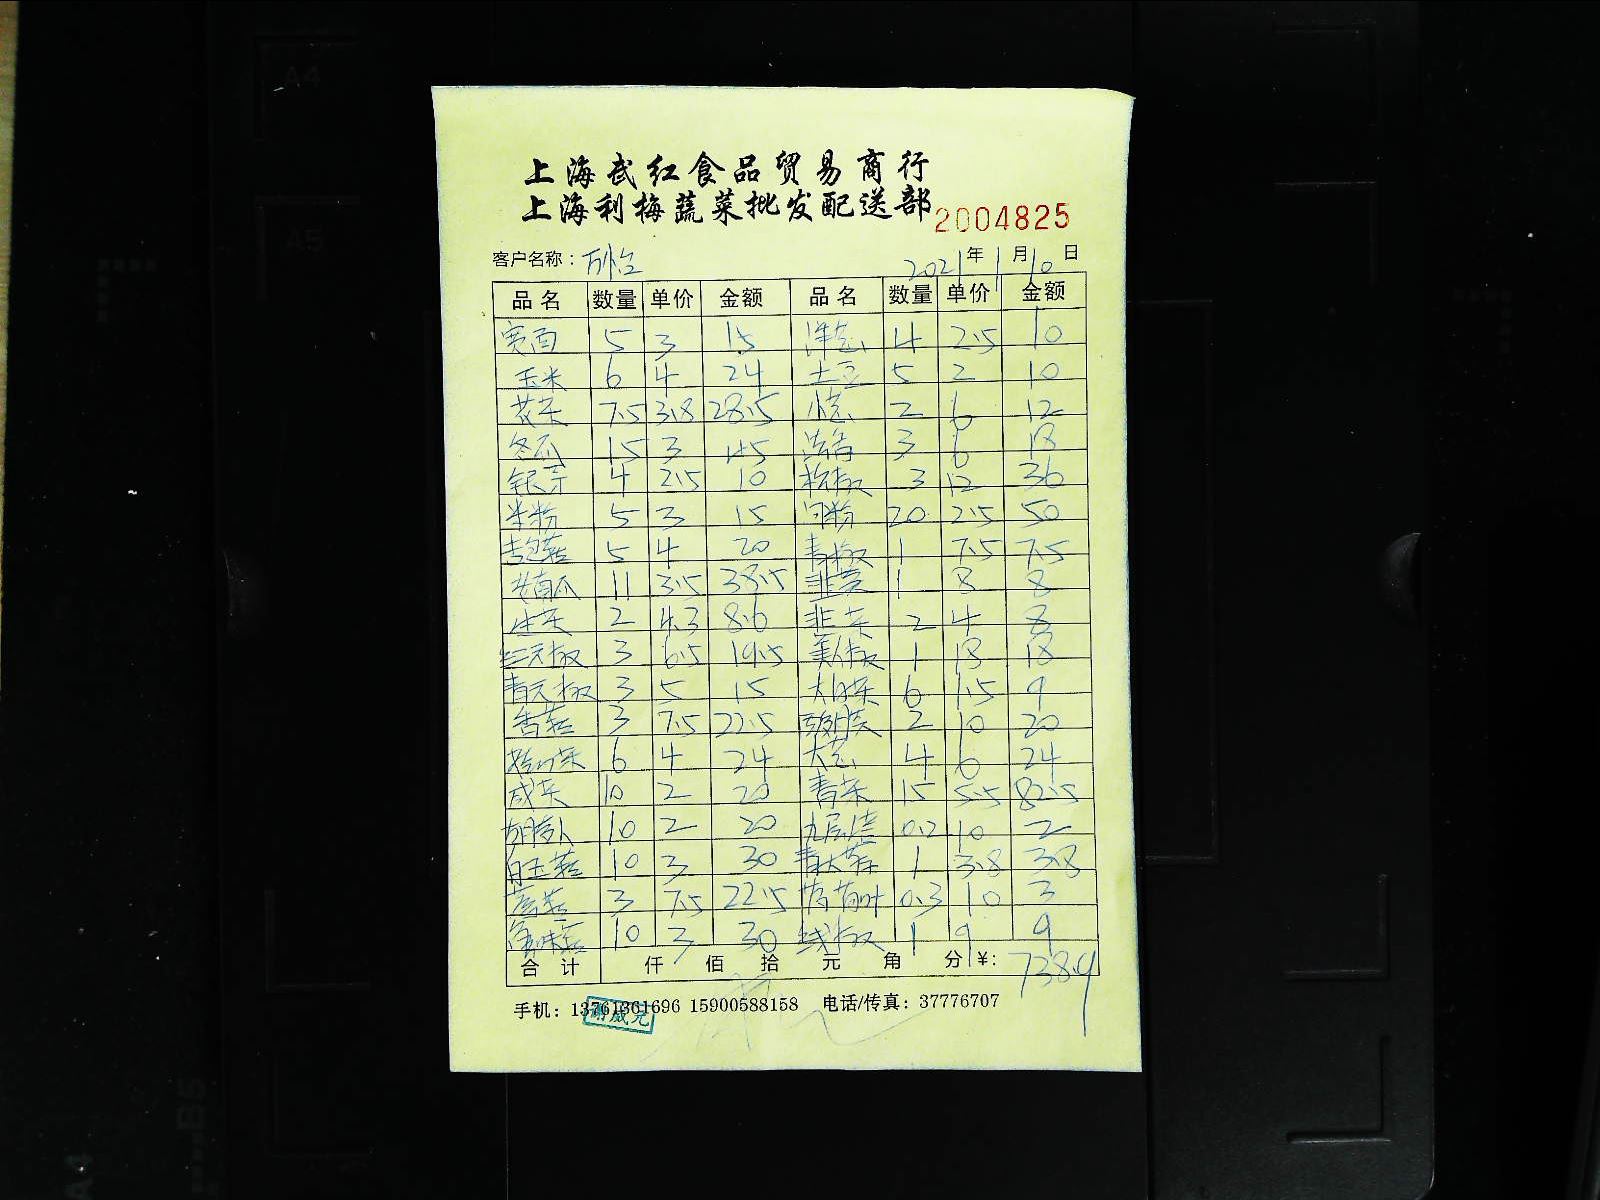 上海武红食品贸易商行
上海利梅蔬菜批发配送部 2004825
客户名称: 万怡 2021年1月10日
品名 数量 单价 金额 品名 数量 单价 金额
宽面 5 3 15 洋葱 4 2.5 10
玉米 6 4 24 土豆 5 2 10
花菜 7.5 3.8 28.5 小葱 2 6 12
冬瓜 15 3 45 3 6 18
银芽 4 2.5 10 3 12 36
米粉 5 3 15 20 2.5 50
杏包菇 5 4 20 青椒 1 7.5 7.5
老南瓜 11 3.5 38.5 韭黄 1 8 8
生菜 2 4.3 8.6 韭菜 2 4 8
红元椒 3 6.5 19.5 美人椒 1 18 18
青元椒 3 5 15 大白菜 6 1.5 9
香菇 3 7.5 22.5 2 10 20
6 4 24 大葱 4 6 24
咸菜 10 2 20 青菜 15 5.5 82.5
胡萝卜 10 2 20 九层塔 0.2 10 2
白玉菇 10 3 30 1 3.8 3.8
3 7.5 22.5 薄荷叶 0.3 10 3
10 3 30 线椒 1 9 9
合计 仟 佰 拾 元 角 分 ¥: 738.9
手机: 13761361696 15900588158 电话/传真: 37776707
威元